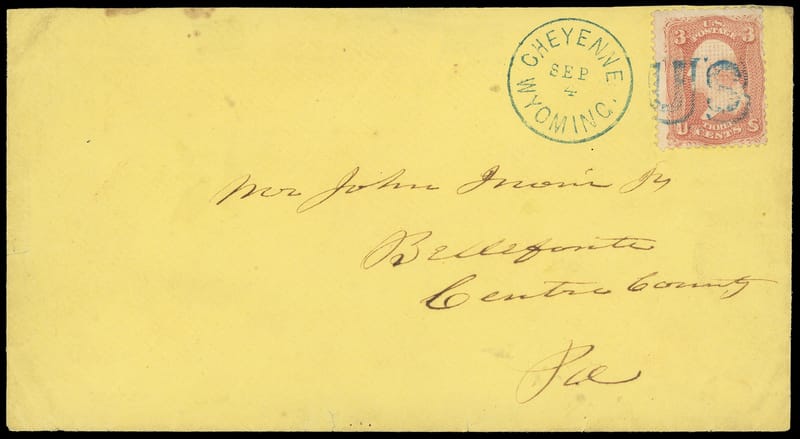 CHEYENNE
SEP
4
WYOMING.
U.S.
POSTAGE
3 3
US
THREE
U CENTS S
Mr John Irwin Jr
Bellefonte
Centre County
Pa